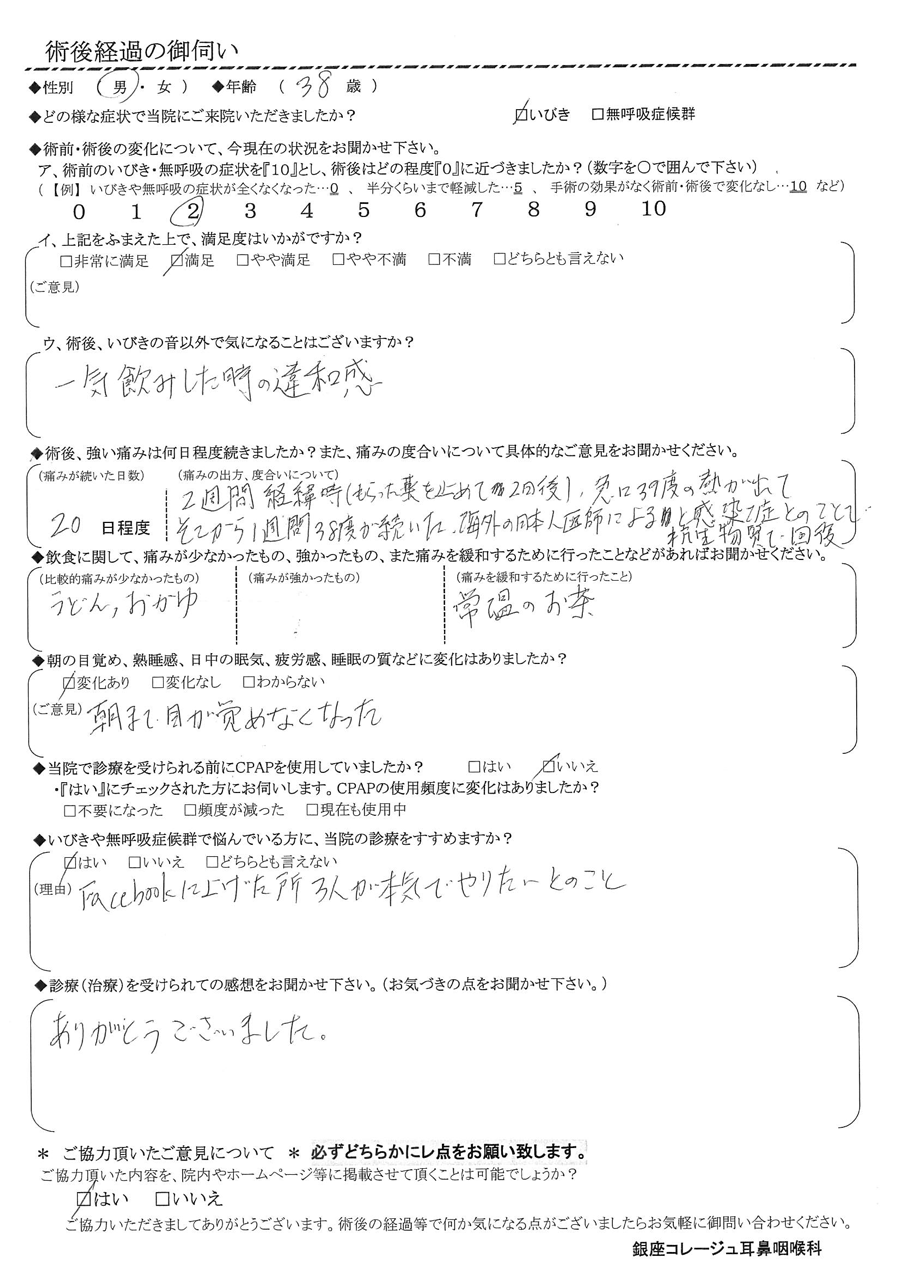 術後経過の御伺い
◆性別 (男・女) ◆年齢 (38歳)
◆どの様な症状で当院にご来院いただきましたか? ☑いびき □無呼吸症候群
◆術前・術後の変化について、今現在の状況をお聞かせ下さい。
ア、術前のいびき・無呼吸の症状を『10』とし、術後はどの程度『0』に近づきましたか?(数字を〇で囲んで下さい)
(【例】いびきや無呼吸の症状が全くなくなった…0 、 半分くらいまで軽減した…5 、 手術の効果がなく術前・術後で変化なし…10 など)
0 1 2 3 4 5 6 7 8 9 10
イ、上記をふまえた上で、満足度はいかがですか?
□非常に満足 ☑満足 □やや満足 □やや不満 □不満 □どちらとも言えない
(ご意見)
ウ、術後、いびきの音以外で気になることはございますか?
一気飲みした時の違和感
◆術後、強い痛みは何日程度続きましたか?また、痛みの度合いについて具体的なご意見をお聞かせください。
(痛みが続いた日数) (痛みの出方、度合いについて)
20 日程度
2週間経緯時(もらった薬を止めて2日後)、急に39度の熱が出て
そこから1週間38度が続いた。海外の日本人医師によると感染症とのことで
抗生物質で回復
◆飲食に関して、痛みが少なかったもの、強かったもの、また痛みを緩和するために行ったことなどがあればお聞かせください。
(比較的痛みが少なかったもの) (痛みが強かったもの) (痛みを緩和するために行ったこと)
うどん,おかゆ 常温のお茶
◆朝の目覚め、熟睡感、日中の眠気、疲労感、睡眠の質などに変化はありましたか?
☑変化あり □変化なし □わからない
(ご意見) 朝まで目が覚めなくなった
◆当院で診療を受けられる前にCPAPを使用していましたか? □はい ☑いいえ
・『はい』にチェックされた方にお伺いします。CPAPの使用頻度に変化はありましたか?
□不要になった □頻度が減った □現在も使用中
◆いびきや無呼吸症候群で悩んでいる方に、当院の診療をすすめますか?
☑はい □いいえ □どちらとも言えない
(理由) Facebookに上げた所3人が本気でやりたいとのこと
◆診療(治療)を受けられての感想をお聞かせ下さい。(お気づきの点をお聞かせ下さい。)
ありがとうございました。
* ご協力頂いたご意見について * 必ずどちらかにレ点をお願い致します。
ご協力頂いた内容を、院内やホームページ等に掲載させて頂くことは可能でしょうか?
☑はい □いいえ
ご協力いただきましてありがとうございます。術後の経過等で何か気になる点がございましたらお気軽に御問い合わせください。
銀座コレージュ耳鼻咽喉科